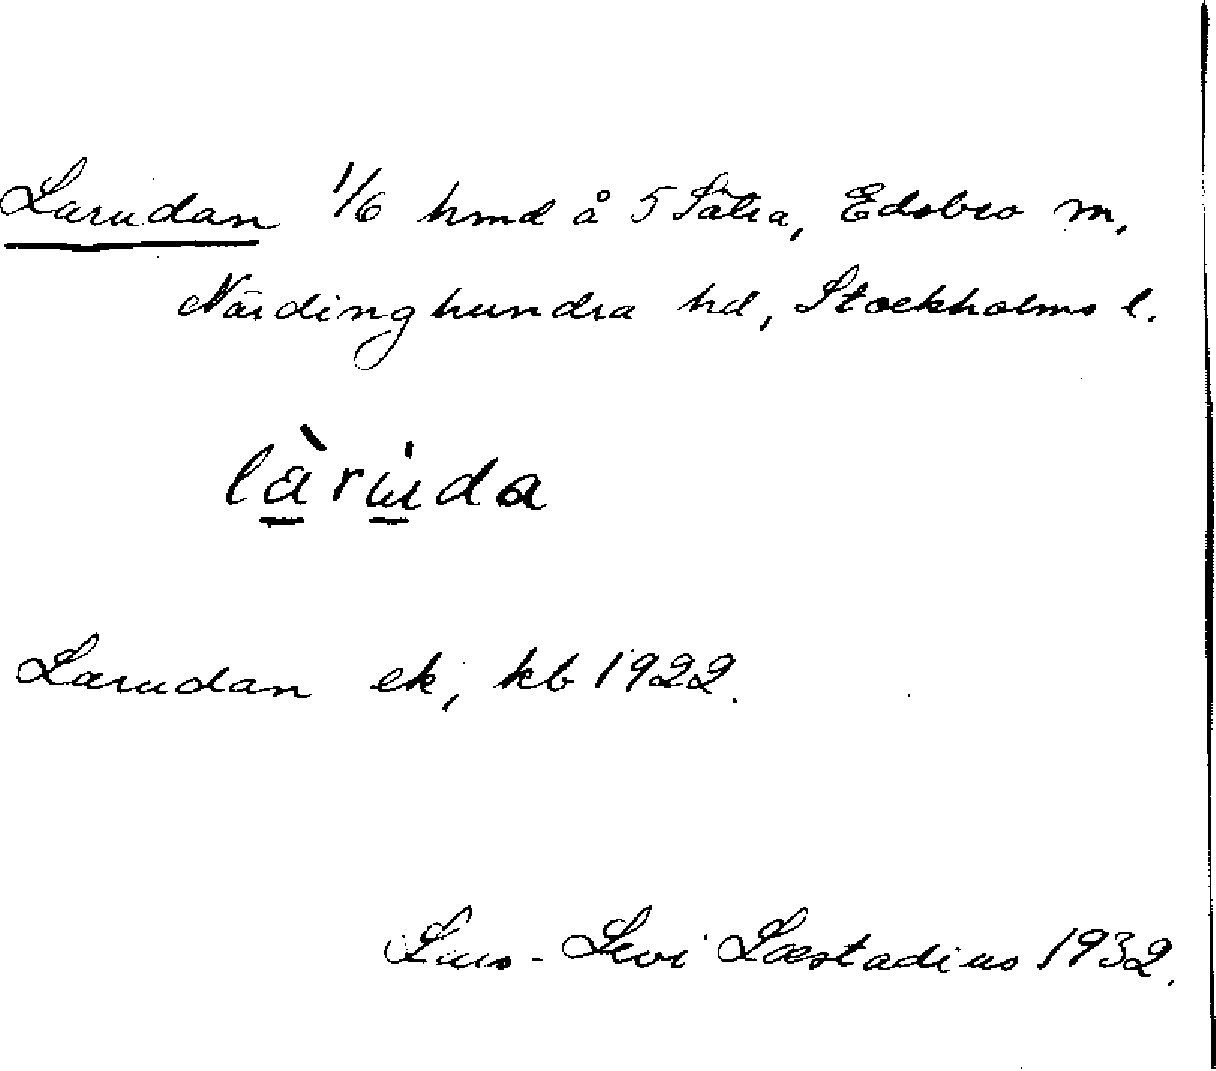 Larudan 1/6 hmd å 5 Sätra, Edsbro sn,
Närdinghundra hd, Stockholms l.
là̱ru̱̇da
Larudan ek, kb 1922.
Lars-Levi Læstadius 1932.